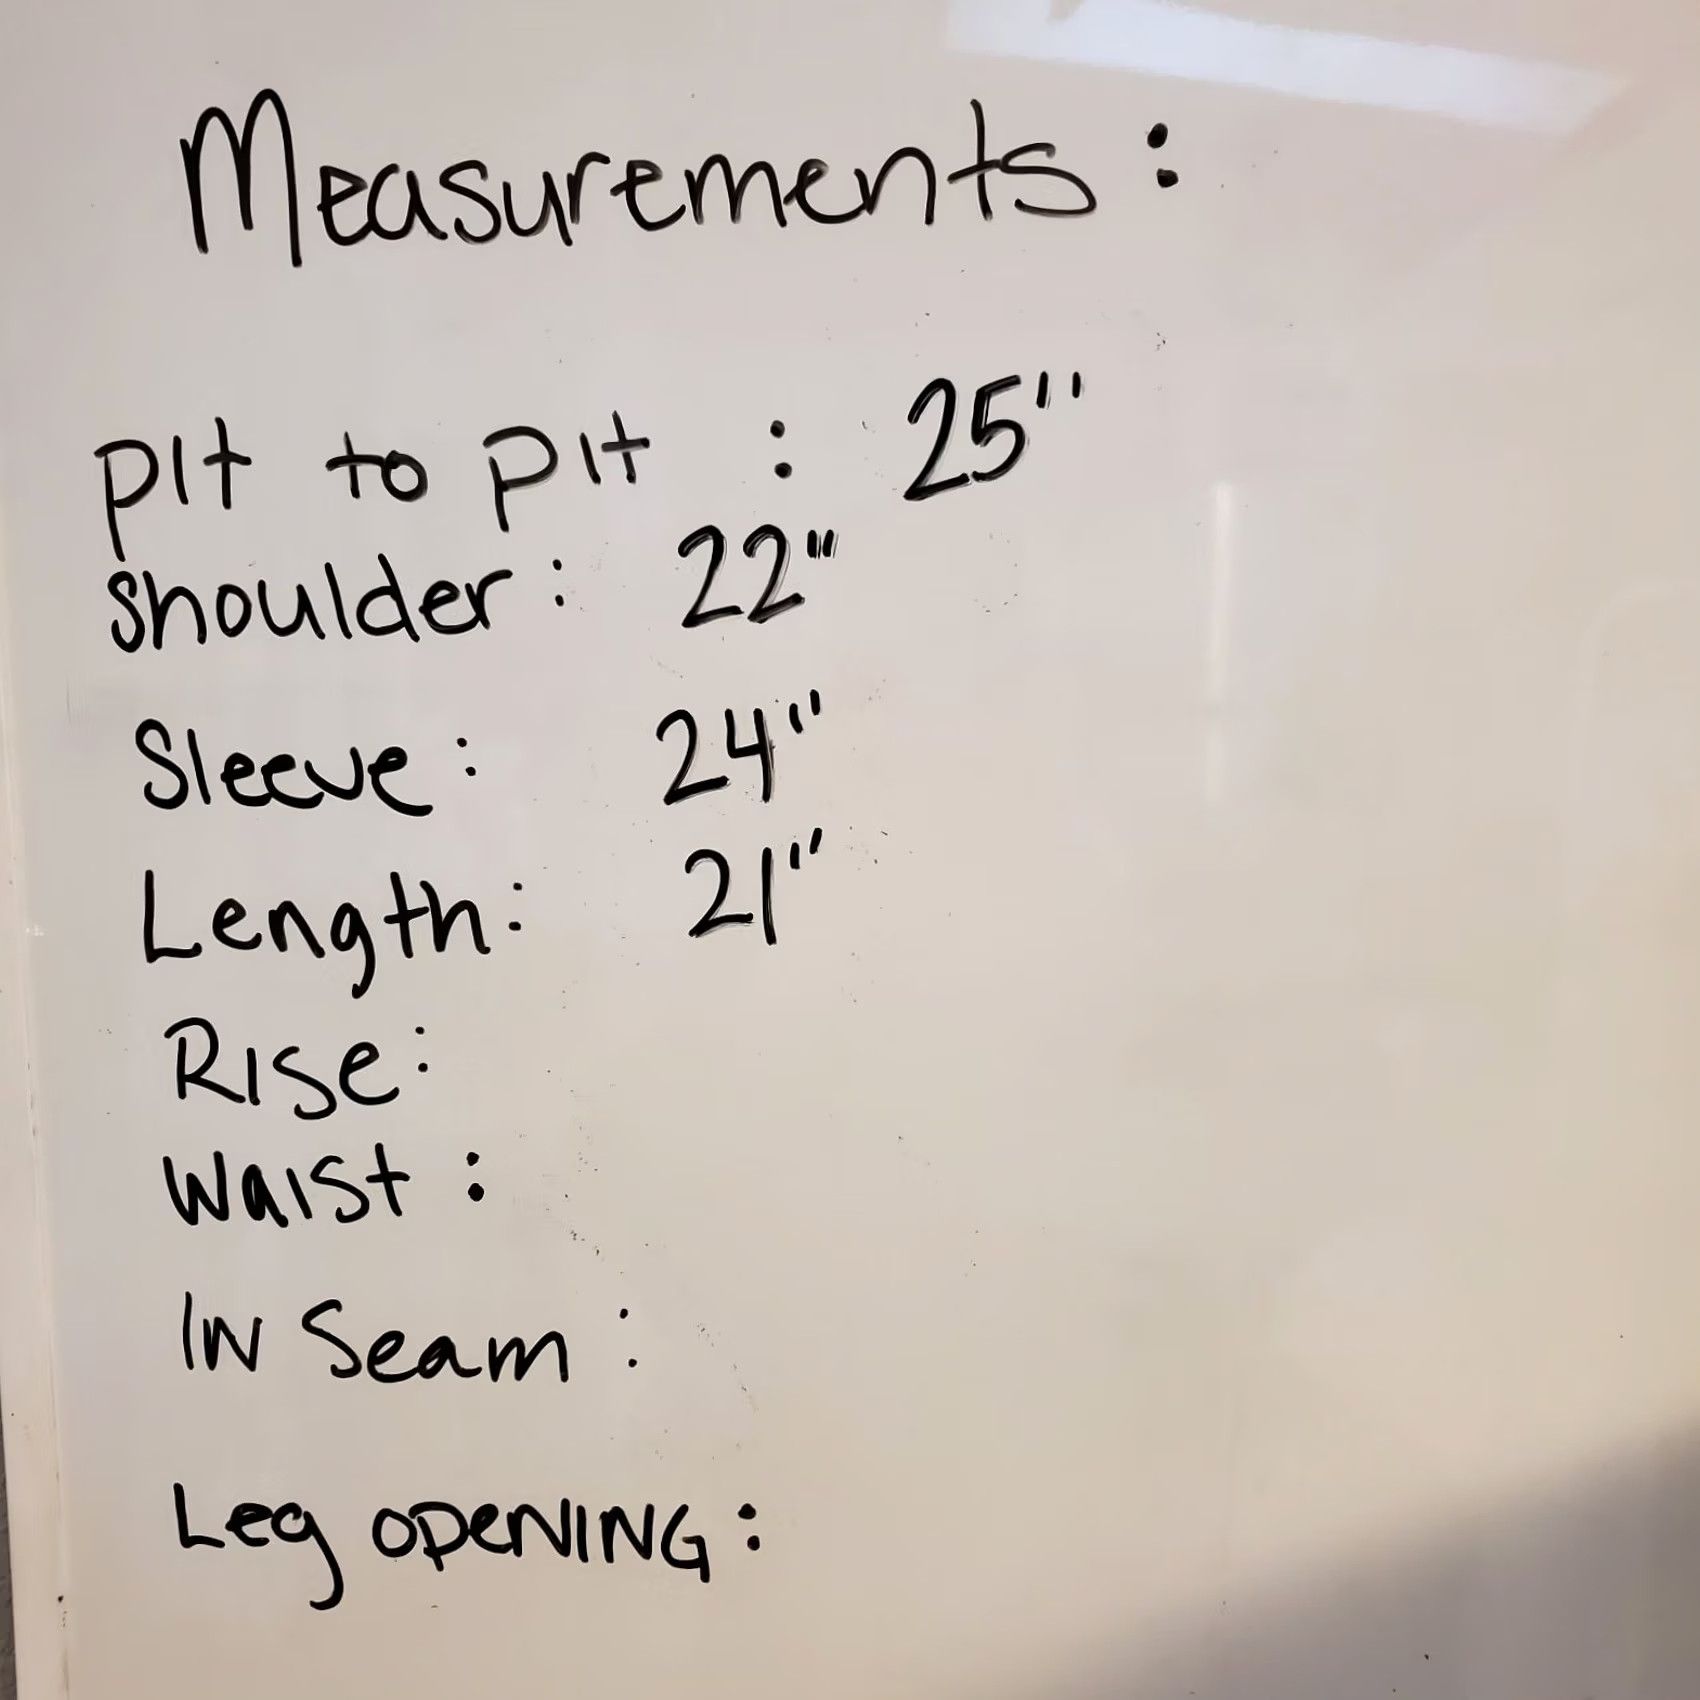 Measurements:
pit to pit : 25"
shoulder: 22"
Sleeve: 24"
Length: 21"
Rise:
Waist :
IN Seam :
Leg OPENING: